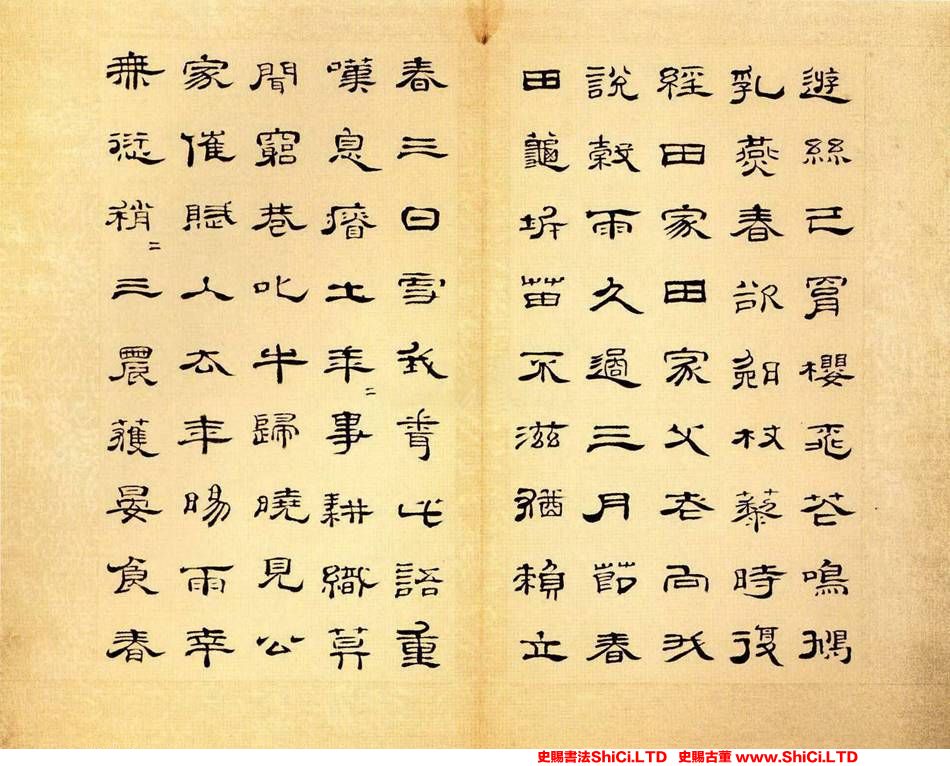 遊絲已罥櫻飛花鳴鳩
乳燕春欲杖藜時復
經田家田家父老向我
說穀雨久過三月節春
田龜坼苗不滋猶賴立
春三日雪我此語重
嘆息瘠土年〻事耕織莫
聞窮巷叱牛歸曉見公
家催賦人去年暘雨幸
無愆稍〻三農獲晏食春
史賜書法ShiCi.LTD 史賜古董 www.ShiCi.LTD